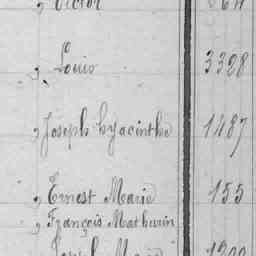 , Victor
, Louis 3328
, Joseph hyacinthe 1487
, Ernest Marie 155
, François Mathurin
Joseph Marie